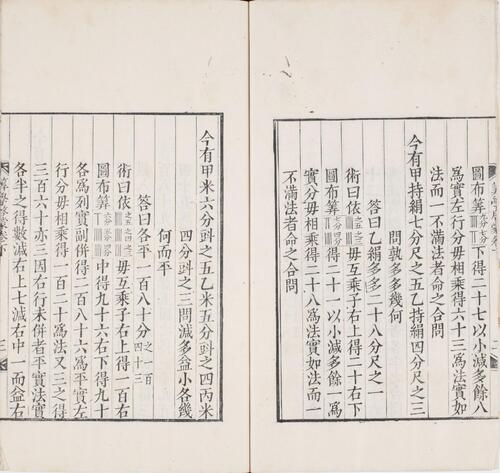 圖布筭下得二十七以小減多餘八
爲實左行分毋相乘得六十三爲法實如
法而一不滿法者命之合問
今有甲持絹七分尺之五乙持絹四分尺之三
問孰多多幾何
答曰乙絹多多二十八分尺之一
術曰依毋互乘子右上得二十右下
圖布筭得二十一以小減多餘一爲
實分毋相乘得二十八爲法實如法而一
不滿法者命之合問
今有甲米六分㪷之五乙米五分㪷之四丙米
四分㪷之三問減多益小各幾
何而平
答曰各平一百八十分之一百四十三
術曰依之五之四之三毋互乘子右上得一百右
圖布筭中得九十六右下得九十
各爲列實副併得二百八十六爲平實左
行分毋相乘得一百二十爲法又三之得
三百六十亦三因右行未併者平實法實
各半之得數減右上七減右中一而益右